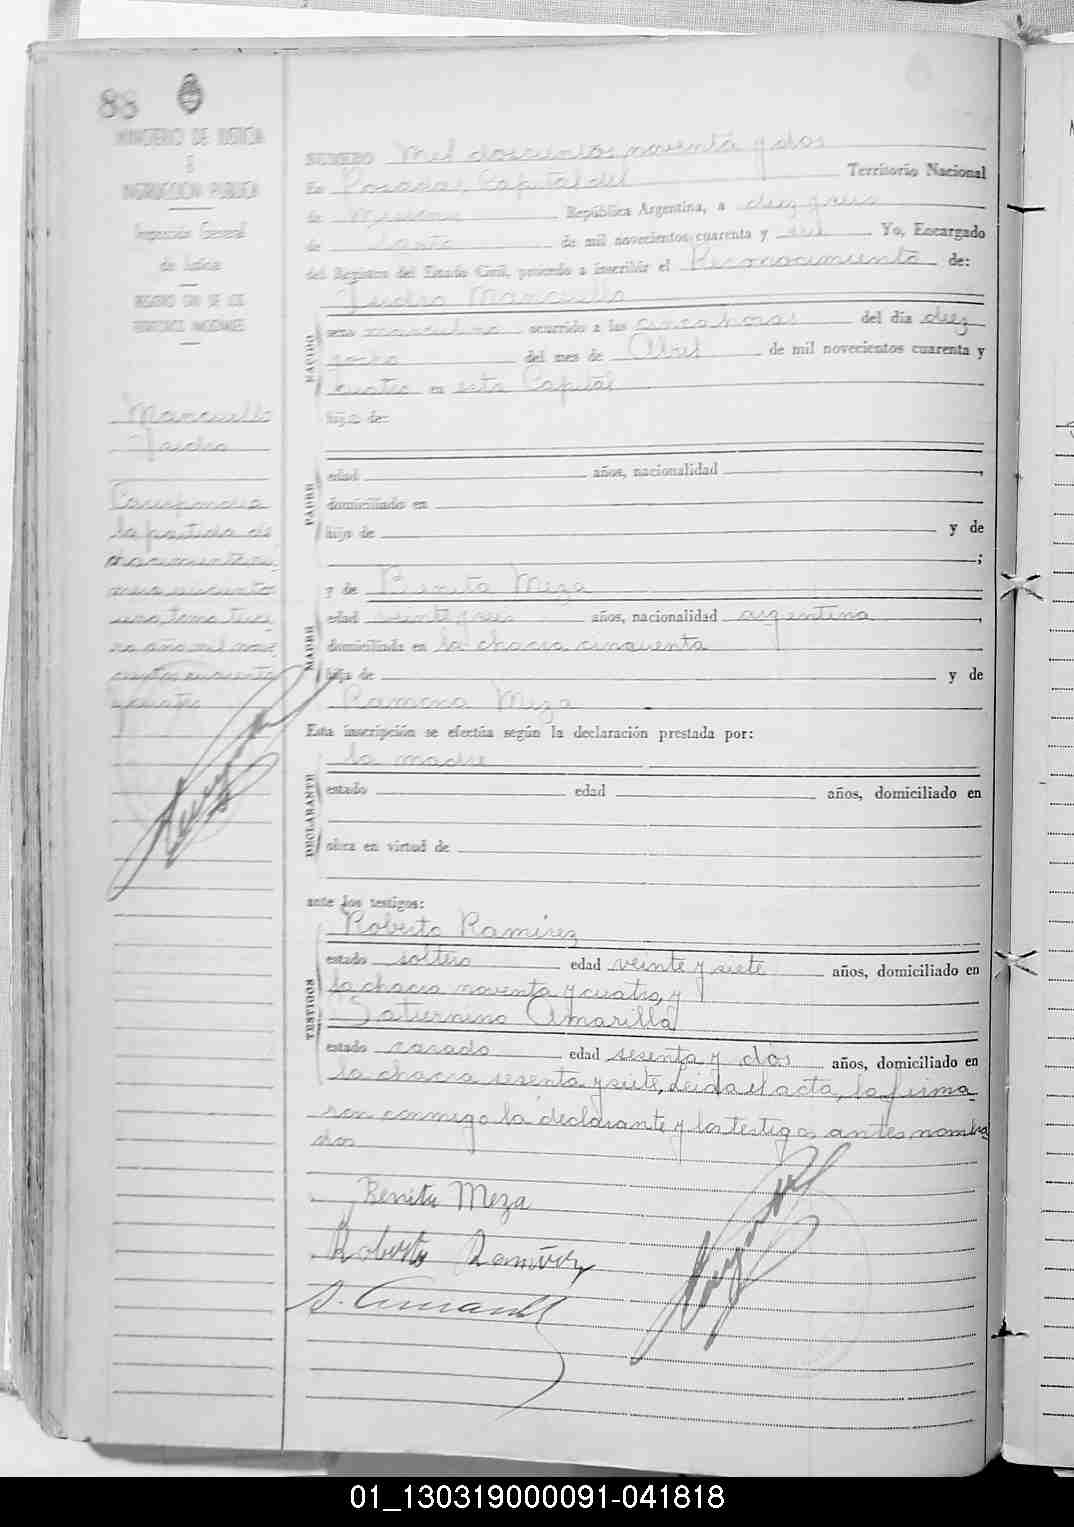 88
MINISTERIO DE JUSTICIA
E
INSTRUCCION PUBLICA
Inspección General
de Justicia
REGISTRO CIVIL DE LOS
TERRITORIOS NACIONALES
Marcuello
Isidro
Corresponde a
la partida de
nacimiento nu
mero
uno tomo terce
ro año mil nove
cientos cuarenta
y cuatro
NUMERO Mil doscientos noventa y dos
En Posadas, Capital del Territorio Nacional
de Misiones República Argentina, a diez y seis
de Agosto de mil novecientos cuarenta y seis Yo, Encargado
del Registro del Estado Civil, procedo a inscribir el Reconocimiento de:
Isidro Marcuello
NACIDO
sexo masculino ocurrido a las cinco horas del dia diez
y ocho del mes de Abril de mil novecientos cuarenta y
cuatro en esta Capital
hijo de:
PADRE
edad años, nacionalidad ,
domiciliado en
hijo de y de
;
y de Benita Meza
MADRE
edad veinte y seis años, nacionalidad argentina ,
domiciliada en la chacra cincuenta
hija de y de
Ramona Meza
Esta inscripción se efectúa según la declaración prestada por:
la madre
DECLARANTE
estado edad años, domiciliado en
obra en virtud de
ante los testigos:
Roberto Ramírez
TESTIGOS
estado soltero edad veinte y siete años, domiciliado en
la chacra noventa y cuatro, y
Saturnino Amarilla
estado casado edad sesenta y dos años, domiciliado en
la chacra sesenta y siete, Leida el acta, la firma
ron conmigo la declarante y los testigos antes nombra
dos
Benita Meza
Roberto Ramírez
S. Amarilla
01_130319000091-041818